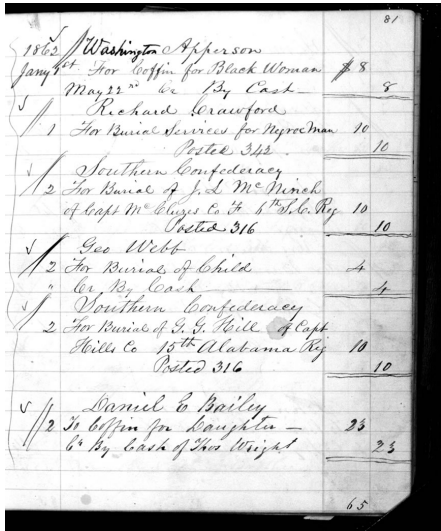 81
1862 Washington Apperson
Jany 1st For Coffin for Black Woman $8
May 22nd Cr By Cash 8
Richard Crawford
1 For Burial Services for Negroe Man 10
Posted 342 10
Southern Confederacy
2 For Burial of J. L McNinch
of Capt McCluges Co F 6th S.C. Reg 10
Posted 316 10
Geo Webb
2 For Burial of Child 4
" Cr By Cash 4
Southern Confederacy
2 For Burial of G. G. Hill of Capt
Hills Co 15th Alabama Rig 10
Posted 316 10
Daniel E Bailey
2 To Coffin for Daughter — 23
Cr By Cash of Thos Wright 23
65